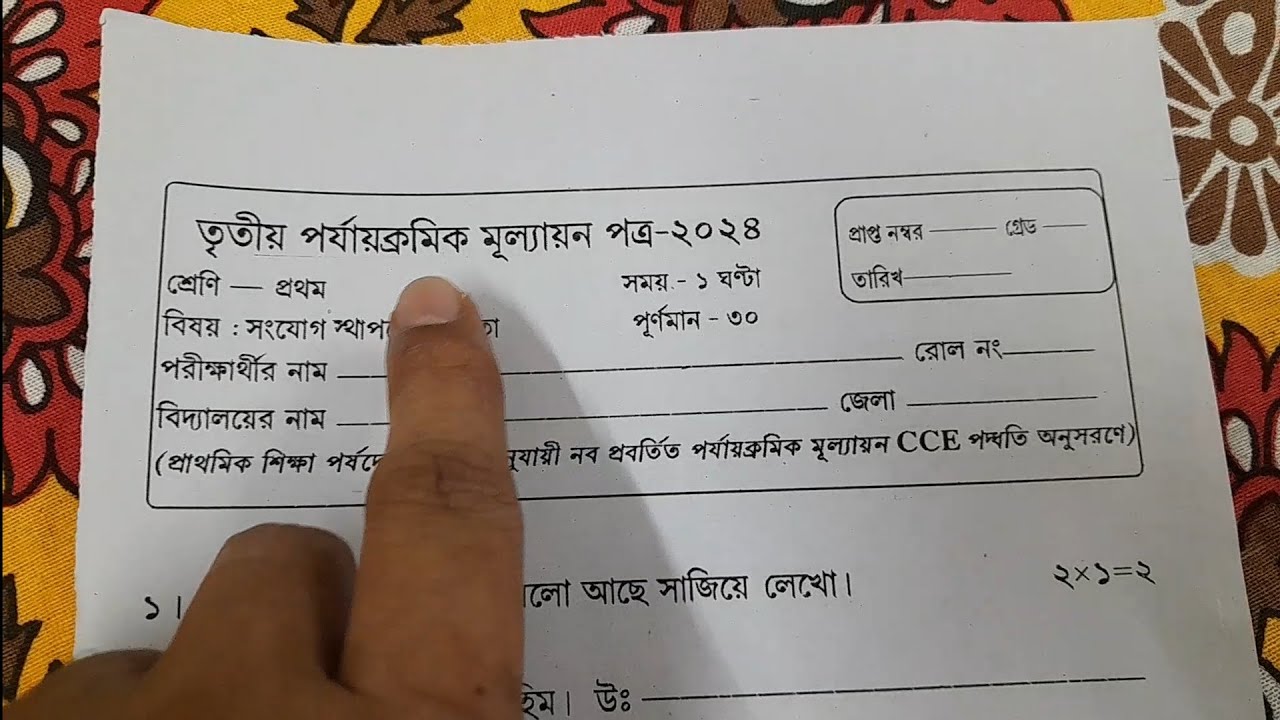 তৃতীয় পর্যায়ক্রমিক মূল্যায়ন পত্র-২০২৪
প্রাপ্ত নম্বর ——— গ্রেড ———
তারিখ ———
শ্রেণি — প্রথম
সময় - ১ ঘণ্টা
বিষয় : সংযোগ
পূর্ণমান - ৩০
পরীক্ষার্থীর নাম ——— রোল নং ———
বিদ্যালয়ের নাম ——— জেলা ———
(প্রাথমিক শিক্ষা নব প্রবর্তিত পর্যায়ক্রমিক মূল্যায়ন CCE পদ্ধতি অনুসরণে)
১। আছে সাজিয়ে লেখো। ২×১=২
উঃ ———